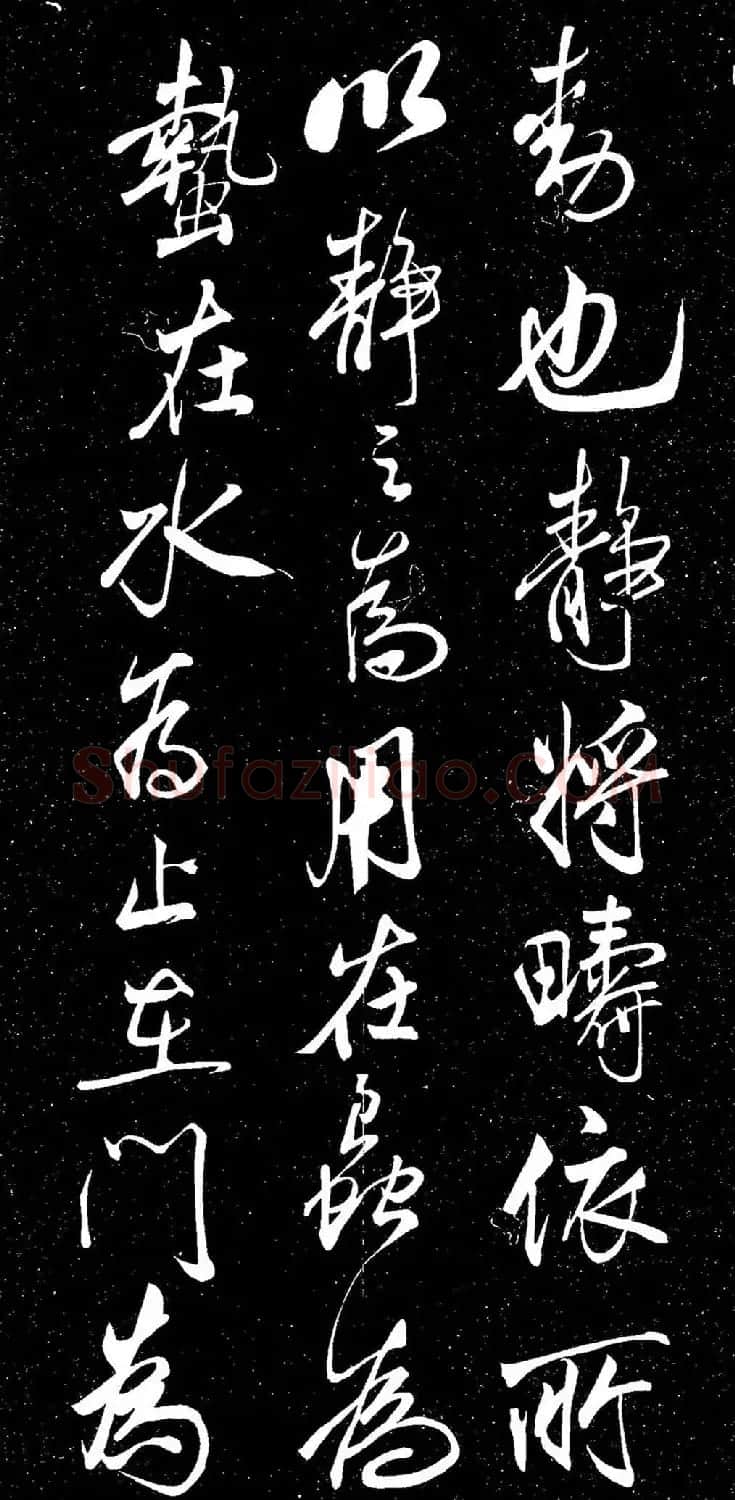 動也靜將疇依所
以靜之為用在蟲為
蟄在水為止在門為
Shufaziliao.COM